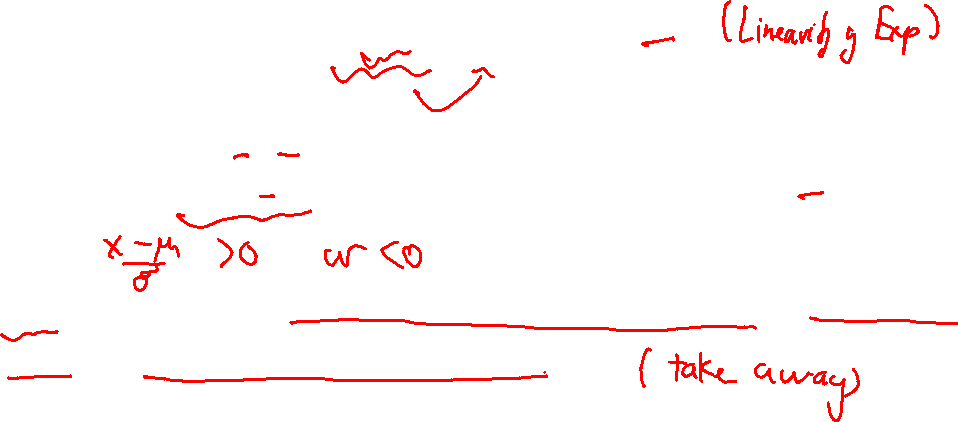 (Linearity of Exp)
x - μ / σ > 0 or < 0
(take away)